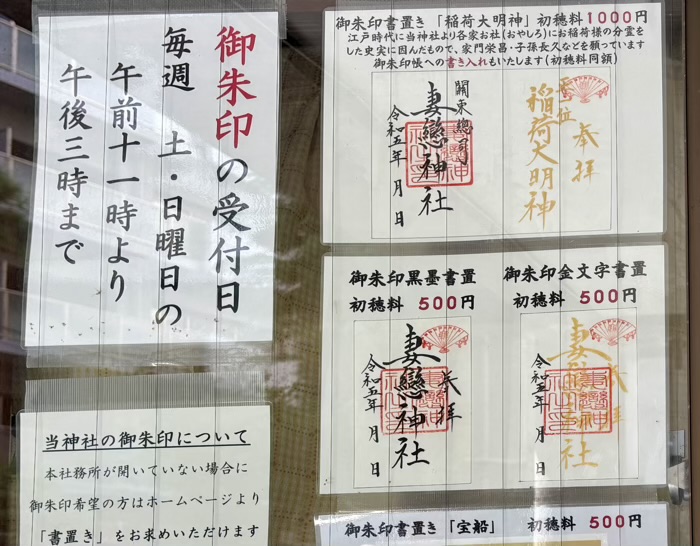 御朱印の受付日
毎週 土・日曜日の
午前十一時より
午後三時まで
当神社の御朱印について
本社務所が開いていない場合に
御朱印希望の方はホームページより
「書置き」をお求めいただけます
御朱印書置き「稲荷大明神」初穂料1000円
江戸時代に当神社より各家お社(おやしろ)にお稲荷様の分霊を
した史実に因んだもので、家門栄昌・子孫長久などを願っています
御朱印帳への書き入れもいたします(初穂料同額)
奉拝
正一位
稲荷大明神
關東總司
妻戀神社
令和五年 月 日
御朱印黒墨書置
初穂料 500円
奉拝
妻戀神社
令和五年 月 日
御朱印金文字書置
初穂料 500円
奉拝
妻戀神社
令和五年 月 日
御朱印書置き「宝船」 初穂料 500円